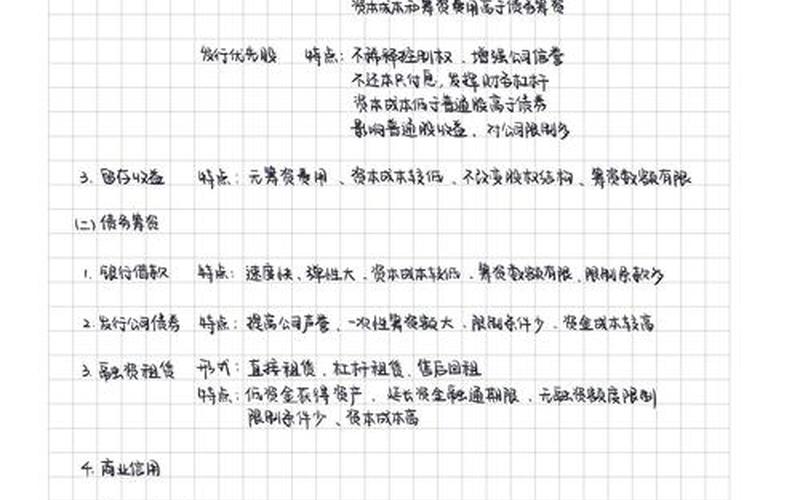 资本成本和筹资费用高于债务筹资
发行优先股 特点：不稀释控制权、增强公司信誉
不还本只付息，发挥财务杠杆
资本成本低于普通股高于债券
影响普通股收益、对公司限制多
3. 留存收益 特点：无筹资费用、资本成本较低、不改变股权结构、筹资数额有限
(二) 债务筹资
1. 银行借款 特点：速度快、弹性大、资本成本较低、筹资数额有限、限制条款多
2. 发行公司债券 特点：提高公司声誉、一次性筹资数额大、限制条件少、资金成本较高
3. 融资租赁 形式：直接租赁、杠杆租赁、售后回租
特点：低资金获得资产、延长资金融通期限、无融资额度限制
限制条件少、资本成本高
4. 商业信用